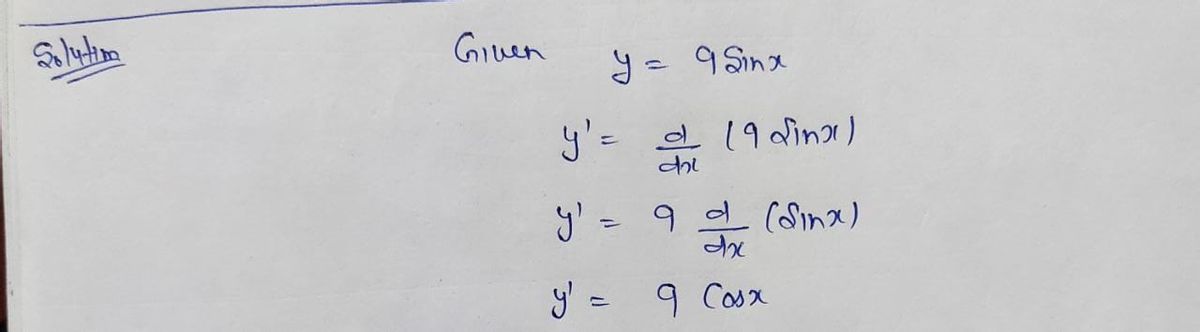 Solution
Given y = 9 Sinx
y' = d/dx (9 Sinx)
y' = 9 d/dx (Sinx)
y' = 9 Cosx